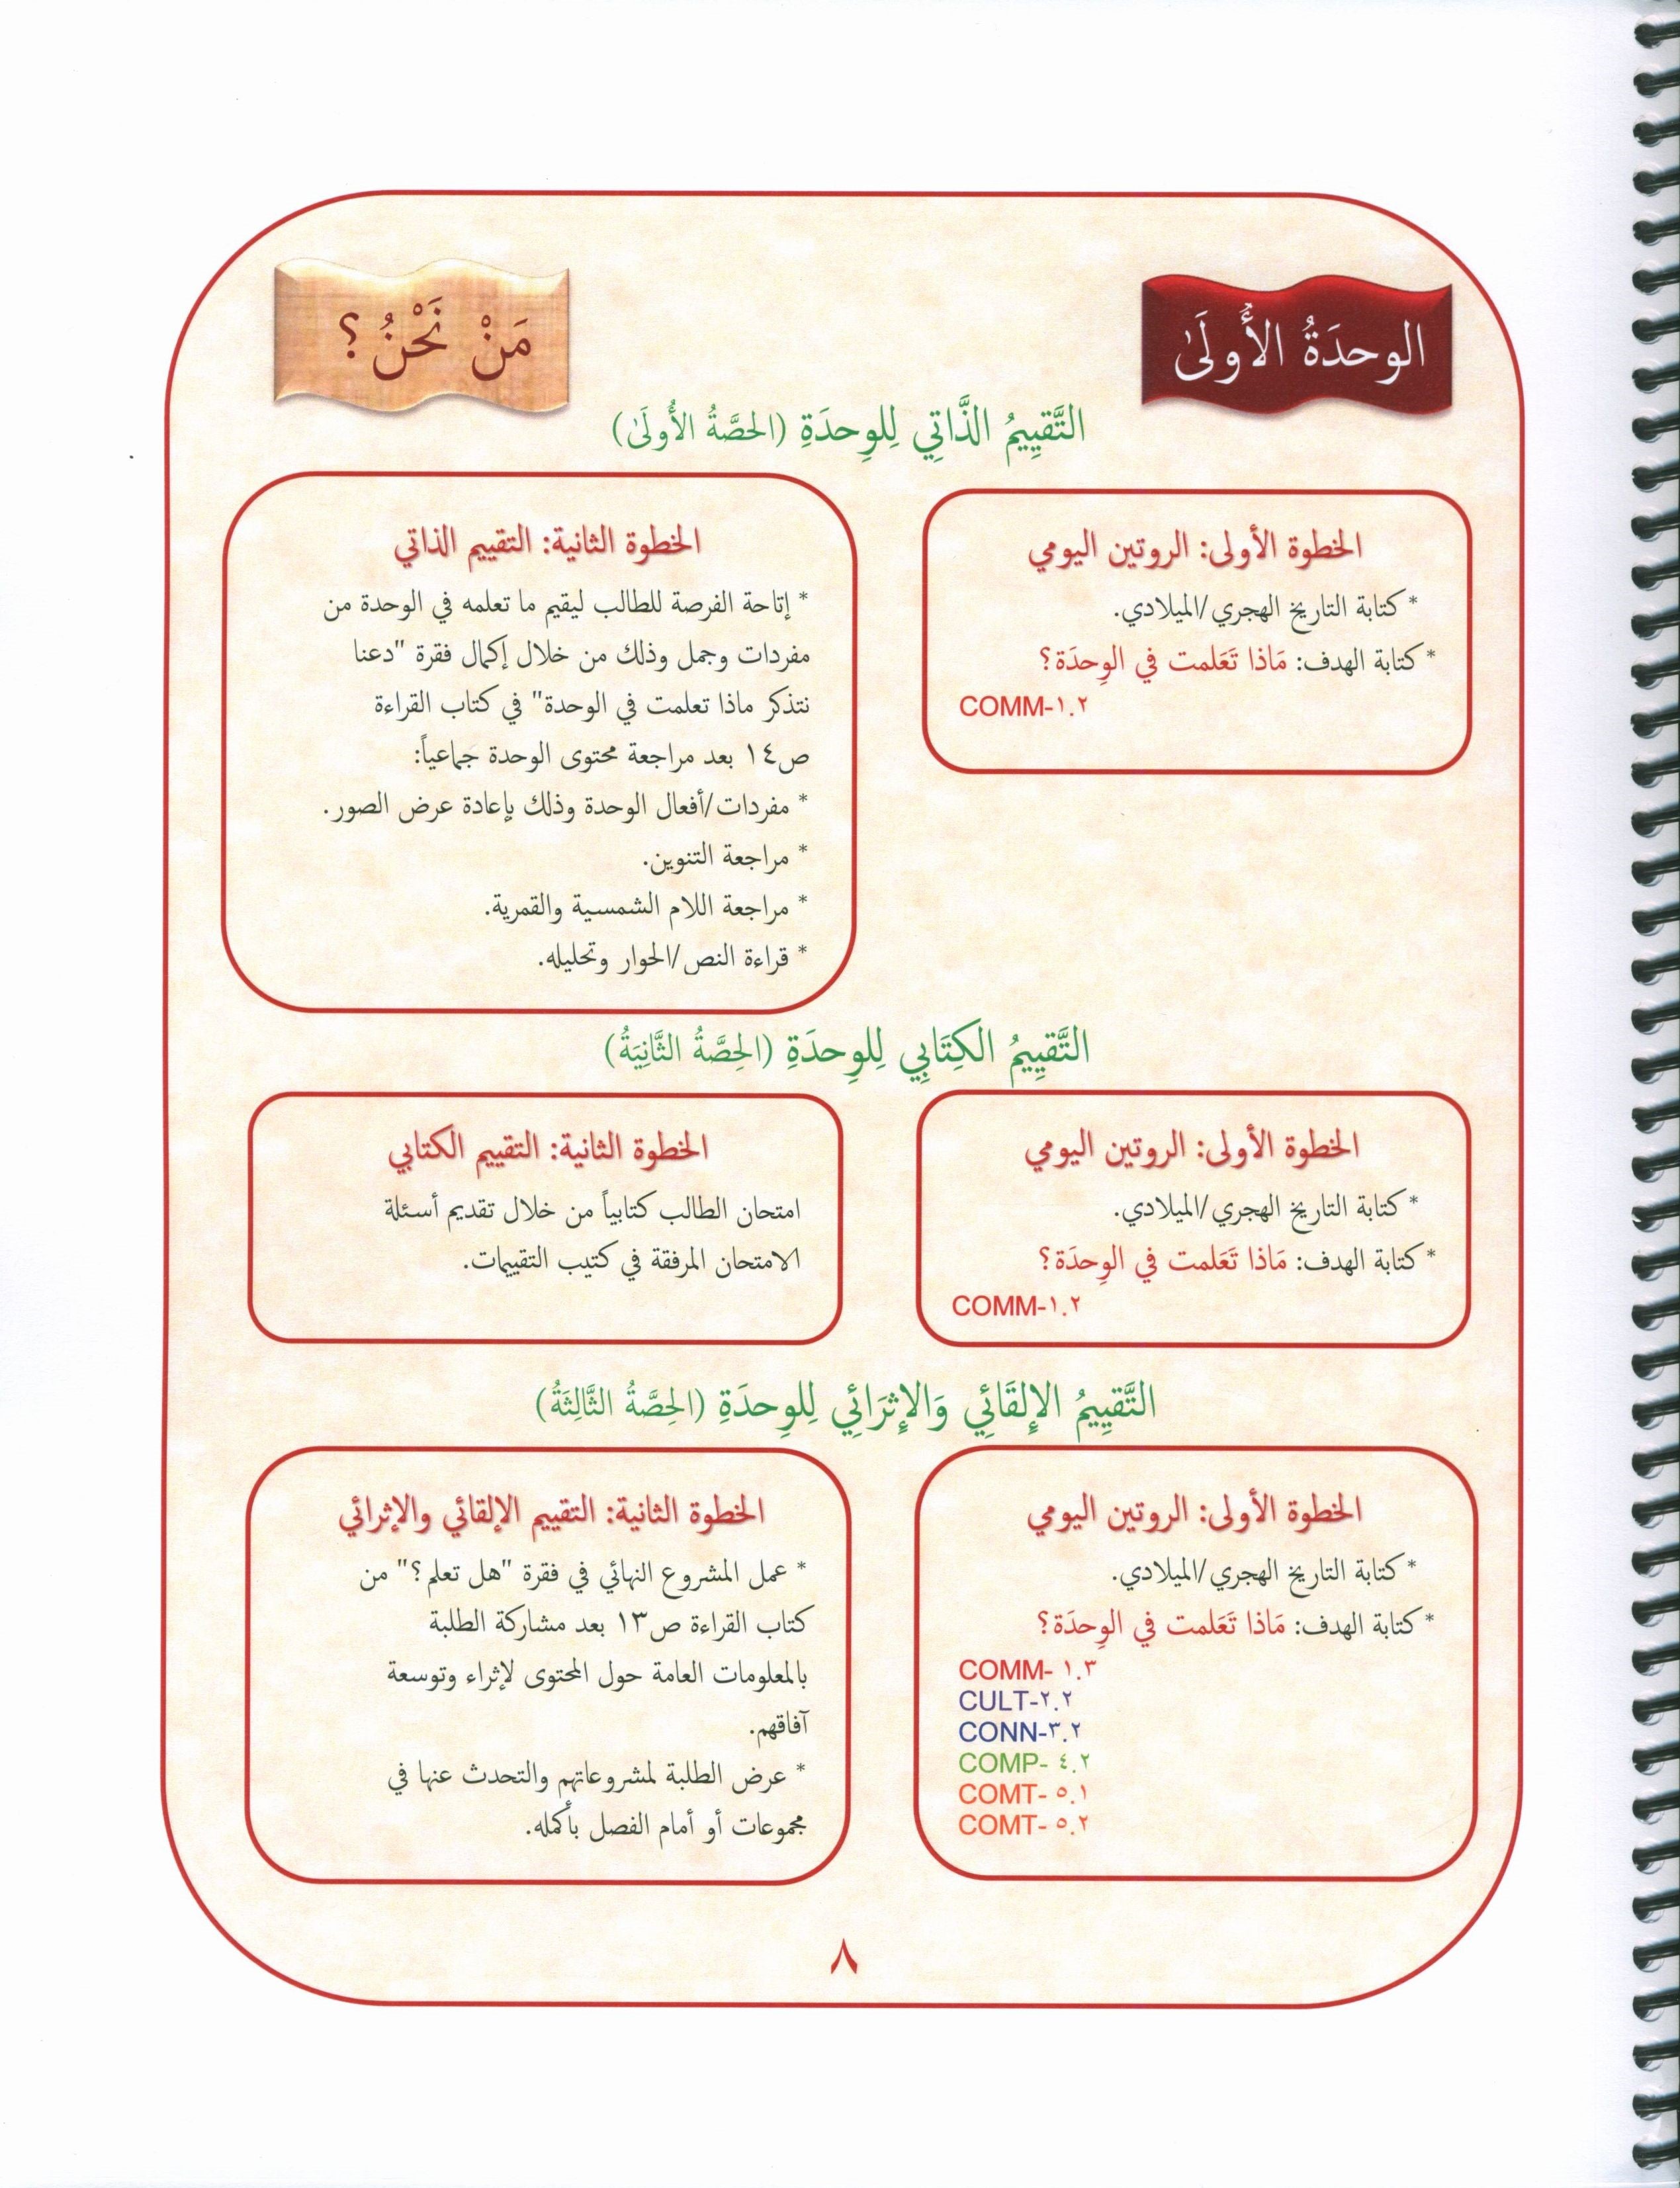 الوحدَةُ الأُولَىٰ
مَنْ نَحْنُ؟
التَّقيِيمُ الذَّاتِي لِلوِحدَةِ (الحصَّةُ الأُولَىٰ)
الخطوة الأولى: الروتين اليومي
* كتابة التاريخ الهجري/الميلادي.
* كتابة الهدف: مَاذا تَعَلمت في الوِحدَة؟
COMM-١.٢
الخطوة الثانية: التقييم الذاتي
* إتاحة الفرصة للطالب ليقيم ما تعلمه في الوحدة من
مفردات وجمل وذلك من خلال إكمال فقرة "دعنا
نتذكر ماذا تعلمت في الوحدة" في كتاب القراءة
ص١٤ بعد مراجعة محتوى الوحدة جماعياً:
* مفردات/أفعال الوحدة وذلك بإعادة عرض الصور.
* مراجعة التنوين.
* مراجعة اللام الشمسية والقمرية.
* قراءة النص/الحوار وتحليله.
التَّقيِيمُ الكِتَابِي لِلوِحدَةِ (الحِصَّةُ الثَّانِيَةُ)
الخطوة الأولى: الروتين اليومي
* كتابة التاريخ الهجري/الميلادي.
* كتابة الهدف: مَاذا تَعَلمت في الوِحدَة؟
COMM-١.٢
الخطوة الثانية: التقييم الكتابي
امتحان الطالب كتابياً من خلال تقديم أسئلة
الامتحان المرفقة في كتيب التقييمات.
التَّقيِيمُ الإِلقَائِي وَالإِثرَائِي لِلوِحدَةِ (الحِصَّةُ الثَّالِثَةُ)
الخطوة الأولى: الروتين اليومي
* كتابة التاريخ الهجري/الميلادي.
* كتابة الهدف: مَاذا تَعَلمت في الوِحدَة؟
COMM- ١.٣
CULT-٢.٢
CONN-٣.٢
COMP- ٤.٢
COMT- ٥.١
COMT- ٥.٢
الخطوة الثانية: التقييم الإلقائي والإثرائي
* عمل المشروع النهائي في فقرة "هل تعلم؟" من
كتاب القراءة ص١٣ بعد مشاركة الطلبة
بالمعلومات العامة حول المحتوى لإثراء وتوسعة
آفاقهم.
* عرض الطلبة لمشروعاتهم والتحدث عنها في
مجموعات أو أمام الفصل بأكمله.
٨